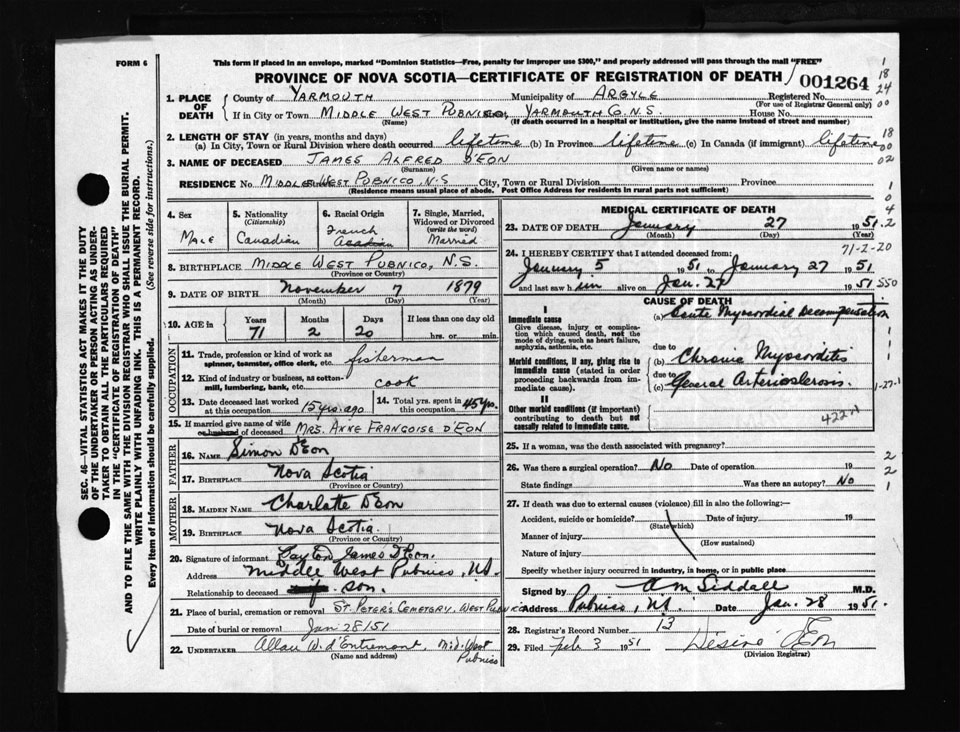 FORM 6
This form if placed in an envelope, marked "Dominion Statistics—Free, penalty for improper use $300," and properly addressed will pass through the mail "FREE"
PROVINCE OF NOVA SCOTIA—CERTIFICATE OF REGISTRATION OF DEATH
001264
1. PLACE OF DEATH
County of YARMOUTH Municipality of ARGYLE Registered No.
(For use of Registrar General only)
If in City or Town MIDDLE WEST PUBNICO, YARMOUTH CO. N.S. House No.
(Name) (If death occurred in a hospital or institution, give the name instead of street and number)
2. LENGTH OF STAY (in years, months and days)
(a) In City, Town or Rural Division where death occurred lifetime (b) In Province lifetime (c) In Canada (if immigrant) lifetime
3. NAME OF DECEASED JAMES ALFRED D'EON
(Surname) (Given name or names)
RESIDENCE No. MIDDLE WEST PUBNICO, N.S City, Town or Rural Division Province
(Residence means usual place of abode. Post Office Address for residents in rural parts not sufficient)
4. Sex Male
5. Nationality (Citizenship) Canadian
6. Racial Origin French Acadian
7. Single, Married, Widowed or Divorced (write the word) Married
8. BIRTHPLACE MIDDLE WEST PUBNICO, N.S.
(Province or Country)
9. DATE OF BIRTH November 7 1879
(Month) (Day) (Year)
10. AGE in Years Months Days If less than one day old
71 2 20 hrs. or min.
OCCUPATION
11. Trade, profession or kind of work as spinner, teamster, office clerk, etc. fisherman
12. Kind of industry or business, as cotton-mill, lumbering, bank, etc. cook
13. Date deceased last worked at this occupation 15 yrs. ago
14. Total yrs. spent in this occupation 45 yrs.
15. If married give name of wife or husband of deceased MRS. ANNE FRANÇOISE D'EON
FATHER
16. NAME Simon D'Eon
17. BIRTHPLACE Nova Scotia
(Province or Country)
MOTHER
18. MAIDEN NAME Charlotte D'Eon
19. BIRTHPLACE Nova Scotia.
(Province or Country)
20. Signature of informant James D'Eon.
Address Middle West Pubnico, N.S.
Relationship to deceased son.
21. Place of burial, cremation or removal ST. PETER'S CEMETERY, WEST PUBNICO
Date of burial or removal Jan 28/51
22. UNDERTAKER Allan W. d'Entremont, Mid. West Pubnico
(Name and address)
MEDICAL CERTIFICATE OF DEATH
23. DATE OF DEATH January 27 1951
(Month) (Day) (Year)
71-2-20
24. I HEREBY CERTIFY that I attended deceased from:
January 5 1951 to January 27 1951
and last saw him alive on Jan. 27 1951
CAUSE OF DEATH
I
Immediate cause
Give disease, injury or complication which caused death, not the mode of dying, such as heart failure, asphyxia, asthenia, etc.
(a) Acute Myocordial Decompensation
Morbid conditions, if any, giving rise to immediate cause (stated in order proceeding backwards from immediate cause).
due to
(b) Chronic Myocorditis
due to
(c) General Arteriosclerosis.
II
Other morbid conditions (if important) contributing to death but not causally related to immediate cause.
25. If a woman, was the death associated with pregnancy?
26. Was there a surgical operation? No Date of operation 19
State findings Was there an autopsy? No
27. If death was due to external causes (violence) fill in also the following:—
Accident, suicide or homicide? Date of injury 19
(State which)
Manner of injury
(How sustained)
Nature of injury
Specify whether injury occurred in industry, in home, or in public place
Signed by A M Siddall M.D.
Address Pubnico, N.S. Date Jan. 28 1951.
28. Registrar's Record Number 13
29. Filed Feb 3 1951 Désiré D'Eon
(Division Registrar)
SEC. 46—VITAL STATISTICS ACT MAKES IT THE DUTY
OF THE UNDERTAKER OR PERSON ACTING AS UNDER-
TAKER TO OBTAIN ALL THE PARTICULARS REQUIRED
IN THE "CERTIFICATE OF REGISTRATION OF DEATH"
AND TO FILE THE SAME WITH THE DIVISION REGISTRAR WHO SHALL ISSUE THE BURIAL PERMIT.
WRITE PLAINLY WITH UNFADING INK. THIS IS A PERMANENT RECORD.
Every item of information should be carefully supplied. (See reverse side for instructions.)